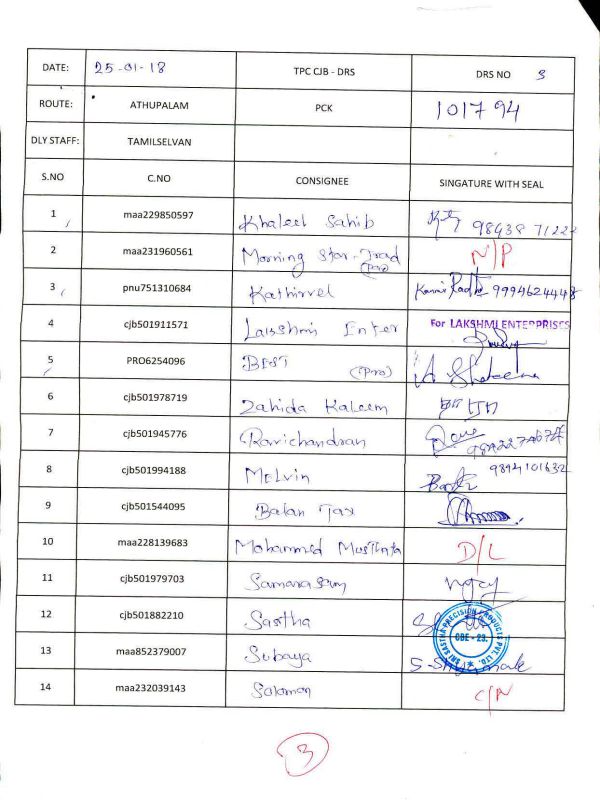 DATE: 25-01-18 TPC CJB - DRS DRS NO 3
ROUTE: ATHUPALAM PCK 101794
DLY STAFF: TAMILSELVAN
S.NO C.NO CONSIGNEE SINGATURE WITH SEAL
1 maa229850597 Khaleel Sahib 98438 71222
2 maa231960561 Morning Star Trad (Pro) N/P
3 pnu751310684 Kathirvel 9994624448
4 cjb501911571 Lakshmi Enter For LAKSHMI ENTERPRISES
5 PRO6254096 BEST (Pro)
6 cjb501978719 Zahida Kaleem
7 cjb501945776 Ravichandran
8 cjb501994188 Melvin 9894101632
9 cjb501544095 Balan Tax
10 maa228139683 Mohammed Musthafa D/L
11 cjb501979703
12 cjb501882210 Sastha
SRI SASTHA PRECISION PRODUCTS PVT. LTD. CBE - 23.
13 maa852379007 Subaya
14 maa232039143 Soloman C/N
3